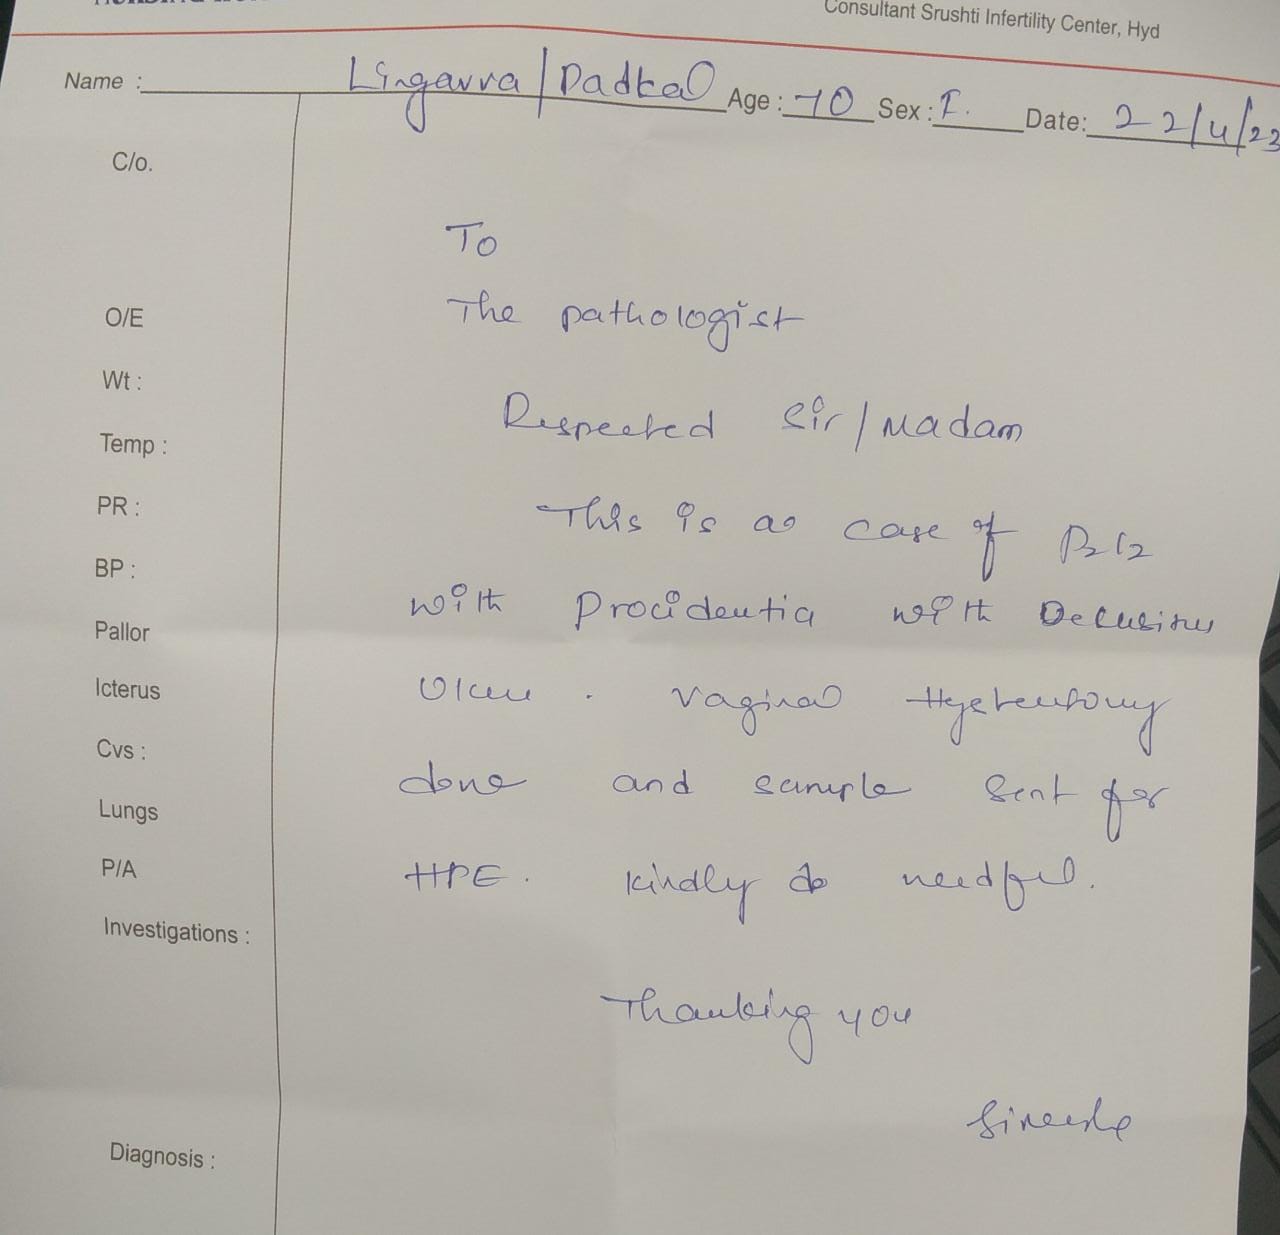 Consultant Srushti Infertility Center, Hyd
Name : Lingavva / Dadkal Age : 70 Sex : F. Date: 22/4/23
C/o.
To
The pathologist
O/E
Wt :
Respected Sir / Madam
Temp :
PR :
This is a case of P2L2
BP :
with Procidentia with Decubitus
Pallor
Icterus
Ulcer . Vaginal Hysterectomy
Cvs :
done and sample sent for
Lungs
P/A
HPE . Kindly do needful.
Investigations :
Thanking you
Diagnosis :